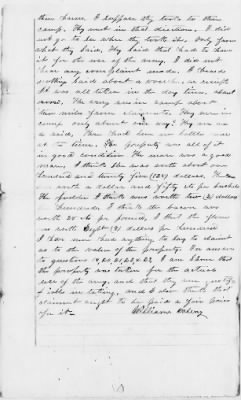 them have. I suppose they took to their
camp. They went in that direction. I did
not go to her when they took this, only from
what they said. They said that had to have
it for the use of the army. I did not
hear any complaint made. I heard
nothing said about a voucher or receipt
It was all taken in the day time, about
noon. The army was in camp about
two miles from
camp only about one day. They were on
a raid, there had been no battle near
at the time. The property was all of it
in good condition. The mare was a good
mare. I think she was worth about one
hundred and twenty five (125) dollars. The corn
was worth a dollar and fifty cts per bushel
The fodder I think was worth two (2) dollars
hundreds. I think the bacon was
worth 25 cts per pound, I think the flour
was worth eight (8) dollars per hundred
I have now had anything to say to claimant
as to the value of the property. For answer
to questions I am sure that
the property was taken for the actual
use of the army, and that they were justifi
able in taking, and I also think that
claimant ought to be paid a fair price
for it.
Williams